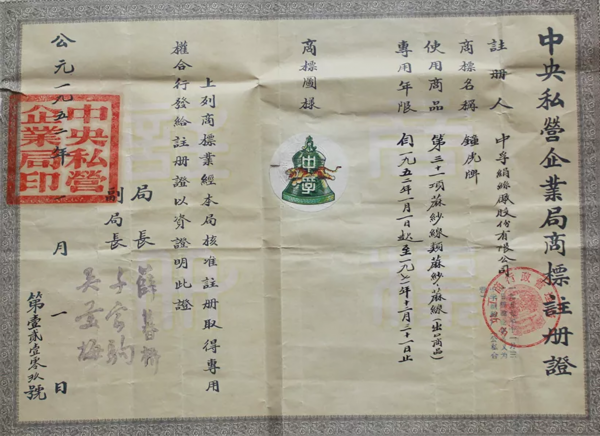 中央私營企業局商標註冊證
註冊人 中孚絹絲廠股份有限公司
商標名稱 鐘虎牌
使用商品 第三十一項蔴紗線類蔴紗、蔴線(出口商品)
專用年限 自一九五二年一月一日起至一九七一年十二月三十一日止
商標圖樣
中孚
上列商標業經本局核准註冊取得專用
權合行發給註冊證以資證明此證
局長 薛暮橋
副局長 千家駒
吳雪梅
公元一九五二年一月一日
中央私營企業局印
第壹貳壹零玖號